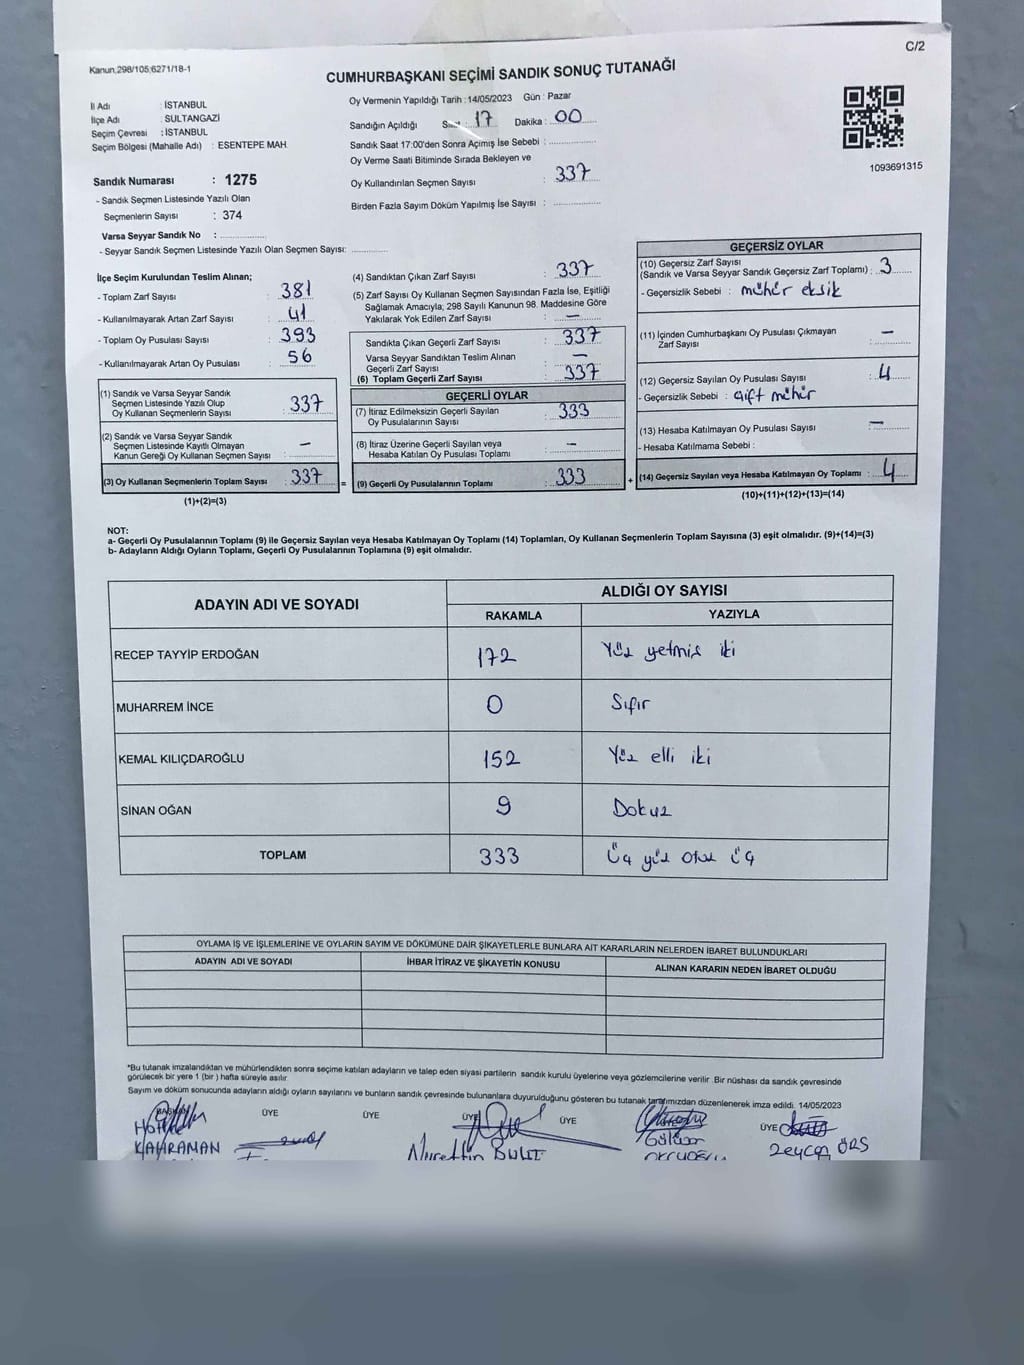 C/2
Kanun;298/105;6271/18-1
CUMHURBAŞKANI SEÇİMİ SANDIK SONUÇ TUTANAĞI
İl Adı : İSTANBUL
İlçe Adı : SULTANGAZİ
Seçim Çevresi : İSTANBUL
Seçim Bölgesi (Mahalle Adı) : ESENTEPE MAH.
Sandık Numarası : 1275
- Sandık Seçmen Listesinde Yazılı Olan
Seçmenlerin Sayısı : 374
Varsa Seyyar Sandık No :
- Seyyar Sandık Seçmen Listesinde Yazılı Olan Seçmen Sayısı:
Oy Vermenin Yapıldığı Tarih : 14/05/2023 Gün : Pazar
Sandığın Açıldığı : 17 Dakika : 00
Sandık Saat 17:00'den Sonra Açımış İse Sebebi :
Oy Verme Saati Bitiminde Sırada Bekleyen ve
Oy Kullandırılan Seçmen Sayısı : 337
Birden Fazla Sayım Döküm Yapılmış İse Sayısı :
1093691315
İlçe Seçim Kurulundan Teslim Alınan;
- Toplam Zarf Sayısı : 381
- Kullanılmayarak Artan Zarf Sayısı : 41
- Toplam Oy Pusulası Sayısı : 393
- Kullanılmayarak Artan Oy Pusulası : 56
(1) Sandık ve Varsa Seyyar Sandık
Seçmen Listesinde Yazılı Olup
Oy Kullanan Seçmenlerin Sayısı : 337
(2) Sandık ve Varsa Seyyar Sandık
Seçmen Listesinde Kayıtlı Olmayan
Kanun Gereği Oy Kullanan Seçmen Sayısı : —
(3) Oy Kullanan Seçmenlerin Toplam Sayısı : 337 =
(1)+(2)=(3)
(4) Sandıktan Çıkan Zarf Sayısı : 337
(5) Zarf Sayısı Oy Kullanan Seçmen Sayısından Fazla İse, Eşitliği
Sağlamak Amacıyla; 298 Sayılı Kanunun 98. Maddesine Göre
Yakılarak Yok Edilen Zarf Sayısı : —
Sandıkta Çıkan Geçerli Zarf Sayısı : 337
Varsa Seyyar Sandıktan Teslim Alınan
Geçerli Zarf Sayısı : —
(6) Toplam Geçerli Zarf Sayısı : 337
GEÇERLİ OYLAR
(7) İtiraz Edilmeksizin Geçerli Sayılan
Oy Pusulalarının Sayısı : 333
(8) İtiraz Üzerine Geçerli Sayılan veya
Hesaba Katılan Oy Pusulası Toplamı : —
(9) Geçerli Oy Pusulalarının Toplamı : 333 +
GEÇERSİZ OYLAR
(10) Geçersiz Zarf Sayısı
(Sandık ve Varsa Seyyar Sandık Geçersiz Zarf Toplamı) : 3
- Geçersizlik Sebebi : mühür eksik
(11) İçinden Cumhurbaşkanı Oy Pusulası Çıkmayan
Zarf Sayısı : —
(12) Geçersiz Sayılan Oy Pusulası Sayısı : 4
- Geçersizlik Sebebi : Çift mühür
(13) Hesaba Katılmayan Oy Pusulası Sayısı : —
- Hesaba Katılmama Sebebi :
(14) Geçersiz Sayılan veya Hesaba Katılmayan Oy Toplamı : 4
(10)+(11)+(12)+(13)=(14)
NOT:
a- Geçerli Oy Pusulalarının Toplamı (9) ile Geçersiz Sayılan veya Hesaba Katılmayan Oy Toplamı (14) Toplamları, Oy Kullanan Seçmenlerin Toplam Sayısına (3) eşit olmalıdır. (9)+(14)=(3)
b- Adayların Aldığı Oyların Toplamı, Geçerli Oy Pusulalarının Toplamına (9) eşit olmalıdır.
ADAYIN ADI VE SOYADI
ALDIĞI OY SAYISI
RAKAMLA YAZIYLA
RECEP TAYYİP ERDOĞAN 172 Yüz yetmiş iki
MUHARREM İNCE 0 Sıfır
KEMAL KILIÇDAROĞLU 152 Yüz elli iki
SİNAN OĞAN 9 Dokuz
TOPLAM 333 Üç yüz otuz üç
OYLAMA İŞ VE İŞLEMLERİNE VE OYLARIN SAYIM VE DÖKÜMÜNE DAİR ŞİKAYETLERLE BUNLARA AİT KARARLARIN NELERDEN İBARET BULUNDUKLARI
ADAYIN ADI VE SOYADI İHBAR İTİRAZ VE ŞİKAYETİN KONUSU ALINAN KARARIN NEDEN İBARET OLDUĞU
*Bu tutanak imzalandıktan ve mühürlendikten sonra seçime katılan adayların ve talep eden siyasi partilerin sandık kurulu üyelerine veya gözlemcilerine verilir .Bir nüshası da sandık çevresinde
görülecek bir yere 1 (bir ) hafta süreyle asılır.
Sayım ve döküm sonucunda adayların aldığı oyların sayılarını ve bunların sandık çevresinde bulunanlara duyurulduğunu gösteren bu tutanak tarafımızdan düzenlenerek imza edildi. 14/05/2023
BAŞKAN ÜYE ÜYE ÜYE ÜYE ÜYE
KAHRAMAN Nurettin BULUT Gülizar Zeycan ÖRS